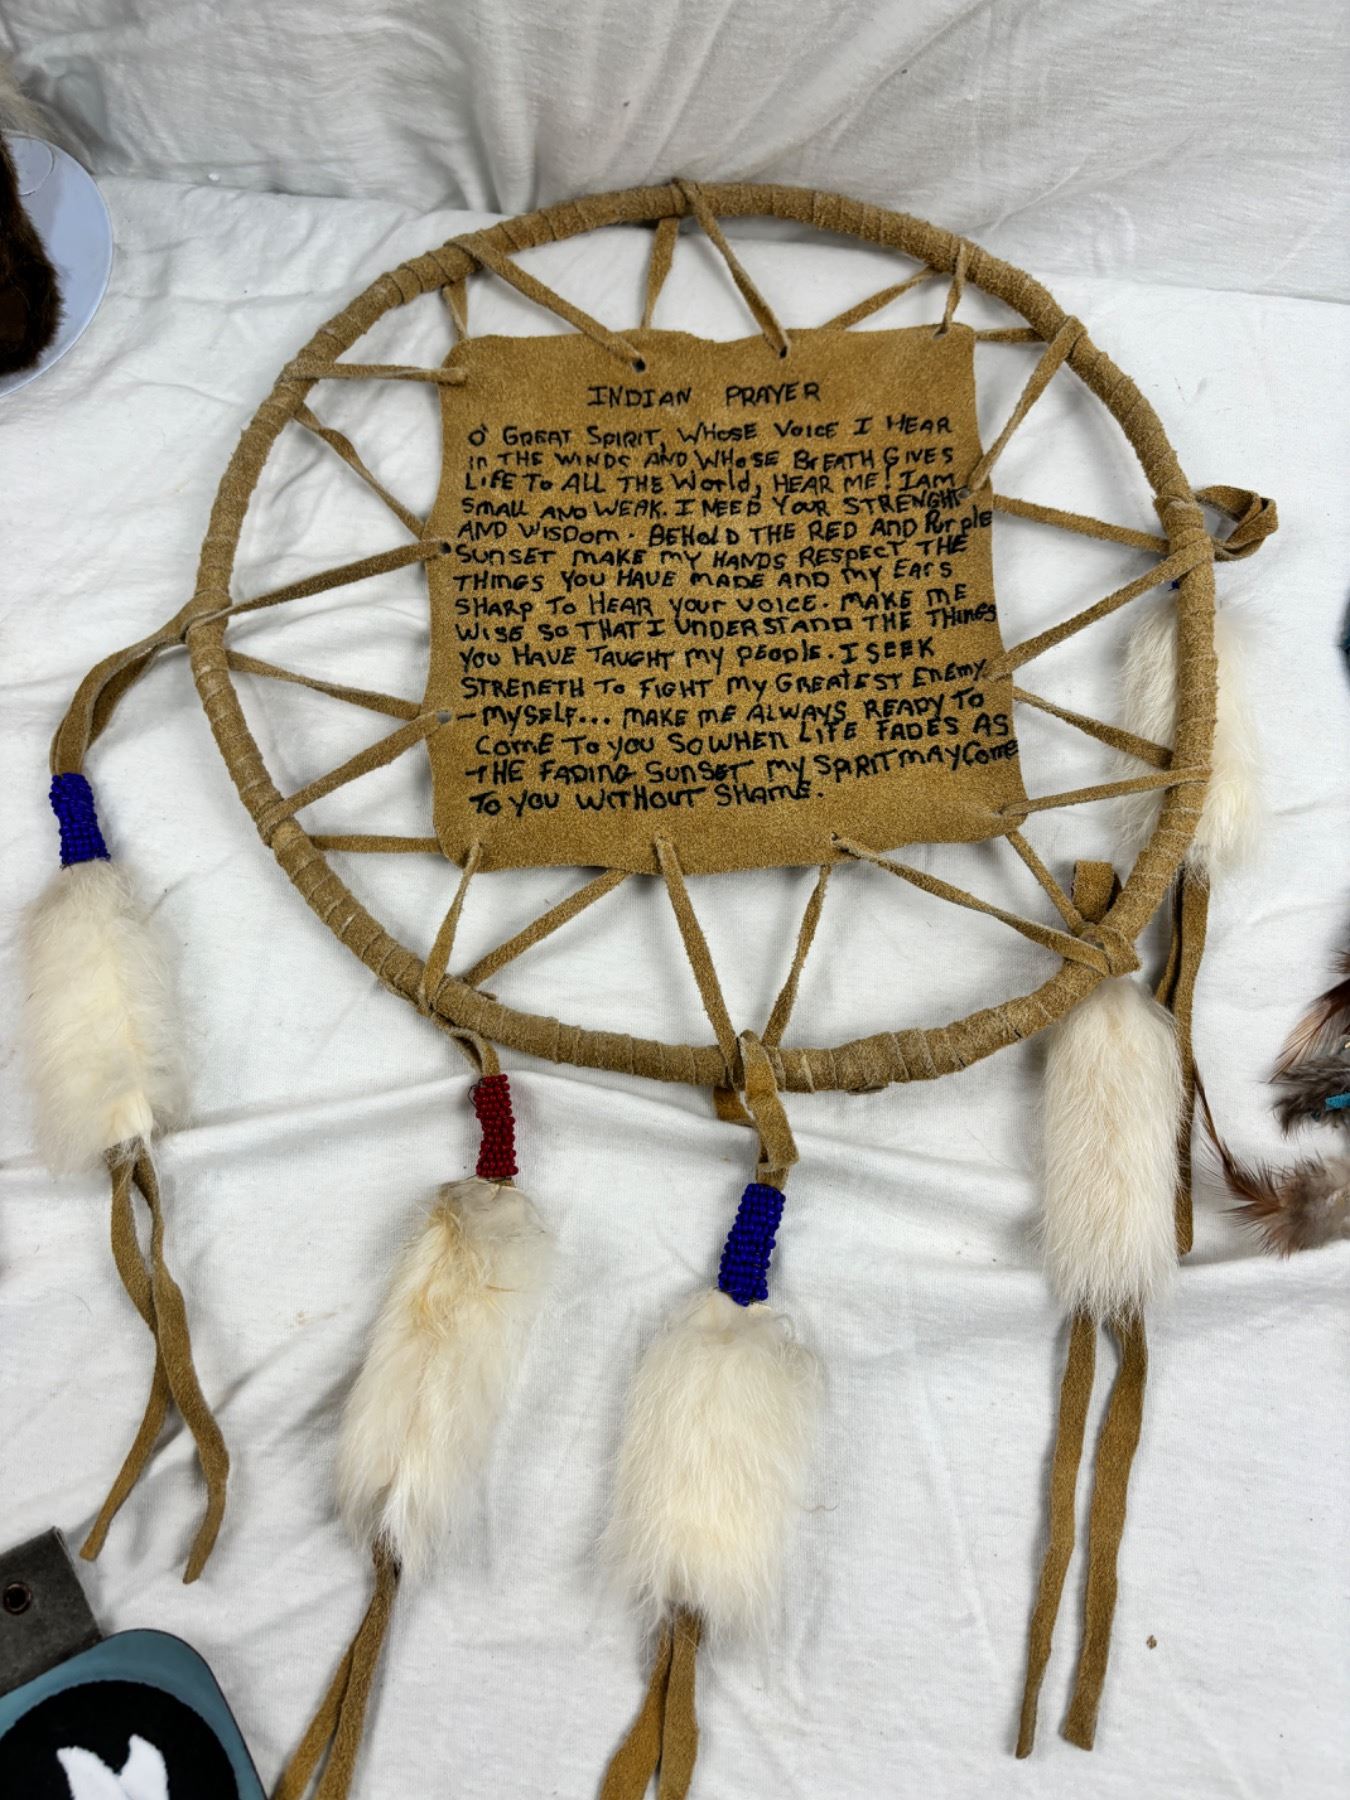 INDIAN PRAYER
O' GREAT SPIRIT, WHOSE VOICE I HEAR
in THE WINDS AND WHOSE BrEATH GIVES
LIFE To ALL THE World, HEAR ME! I AM
SMALL AND WEAK. I NEED YOUR STRENGHT
AND WISDOM. BEHOLD THE RED AND PurPle
SUNSET MAKE my HANDS RESPECT THE
THINGS YOU HAVE MADE AND my EArS
SHARP TO HEAR your VOICE. MAKE ME
WISE SO THAT I UNDERSTAND THE THINGS
YOU HAVE TAUGHT my PEOPlE. I SEEK
STRENETH To FIGHT my GREATEST ENEmy
- MYSELF... MAKE ME ALWAYS READY TO
COME TO you SO WHEN LIFE FADES AS
THE FADING SUNSET my SPIRIT MAY COME
TO YOU WITHOUT SHAME.